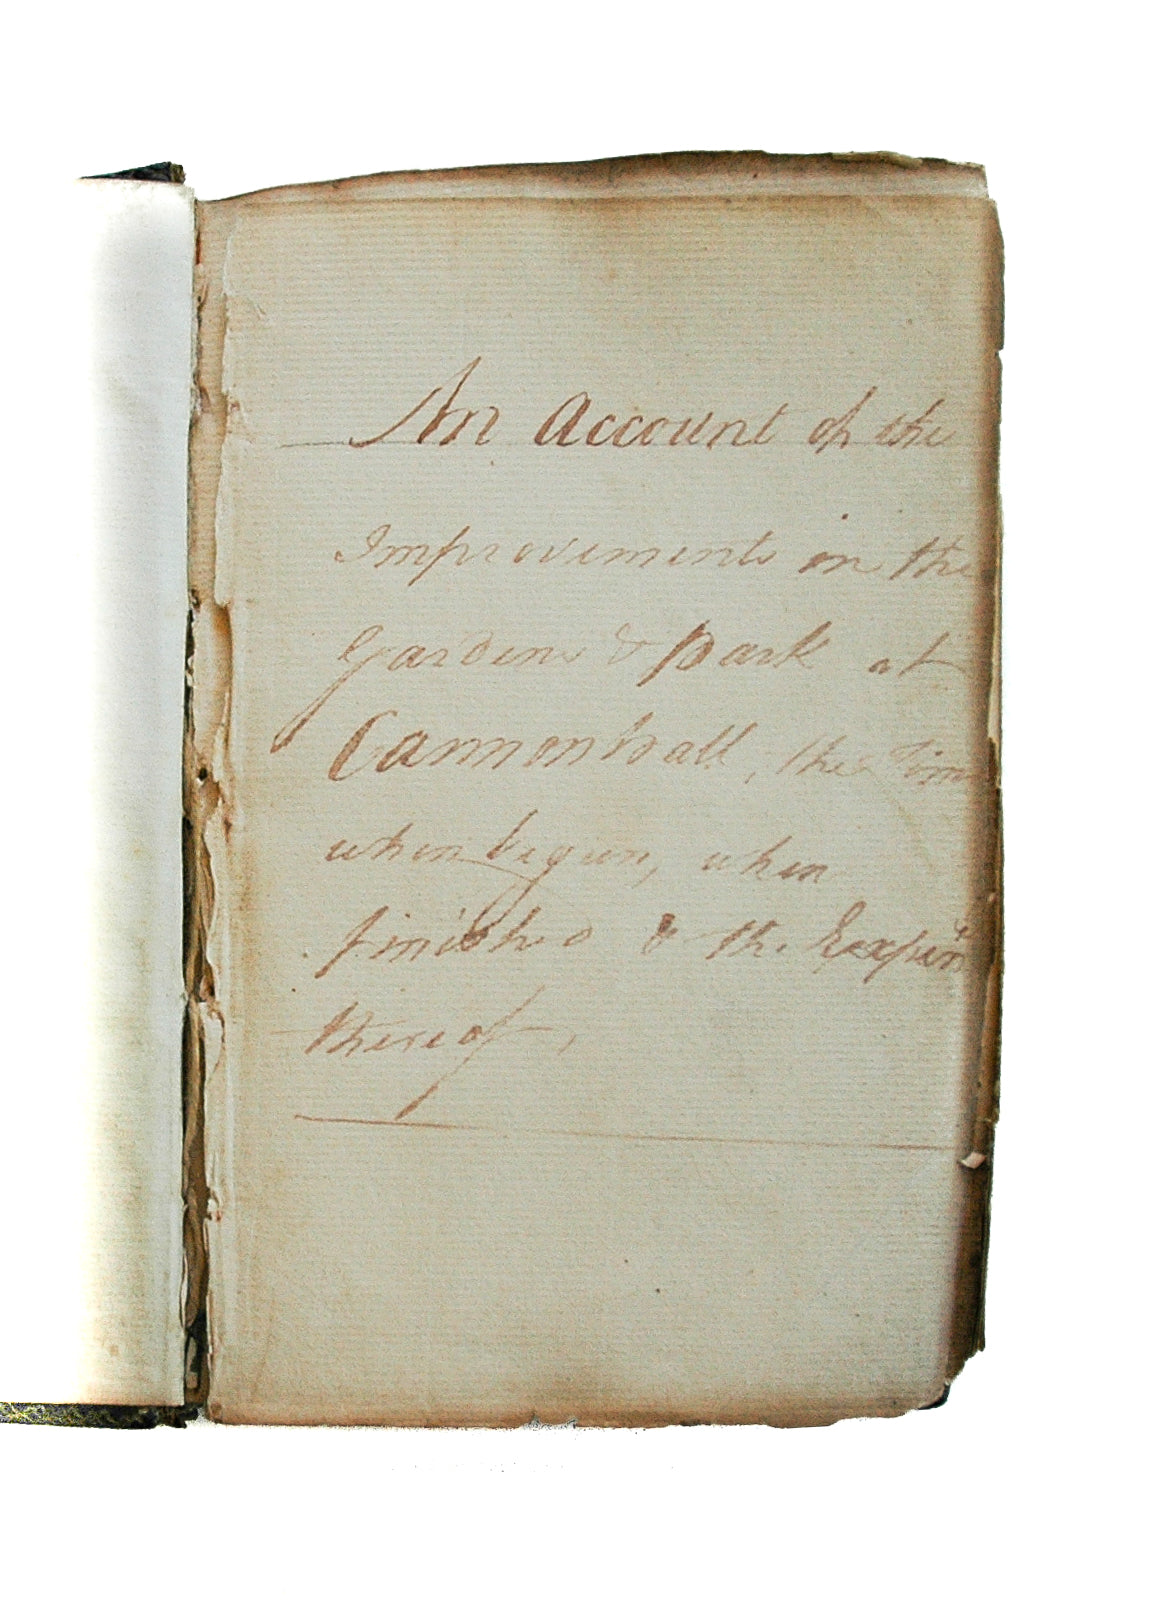 An Account of the
Improvements in the
Gardens & Park at
Cannonhall, the Time
when begun, when
finished & the Expen
thereof,